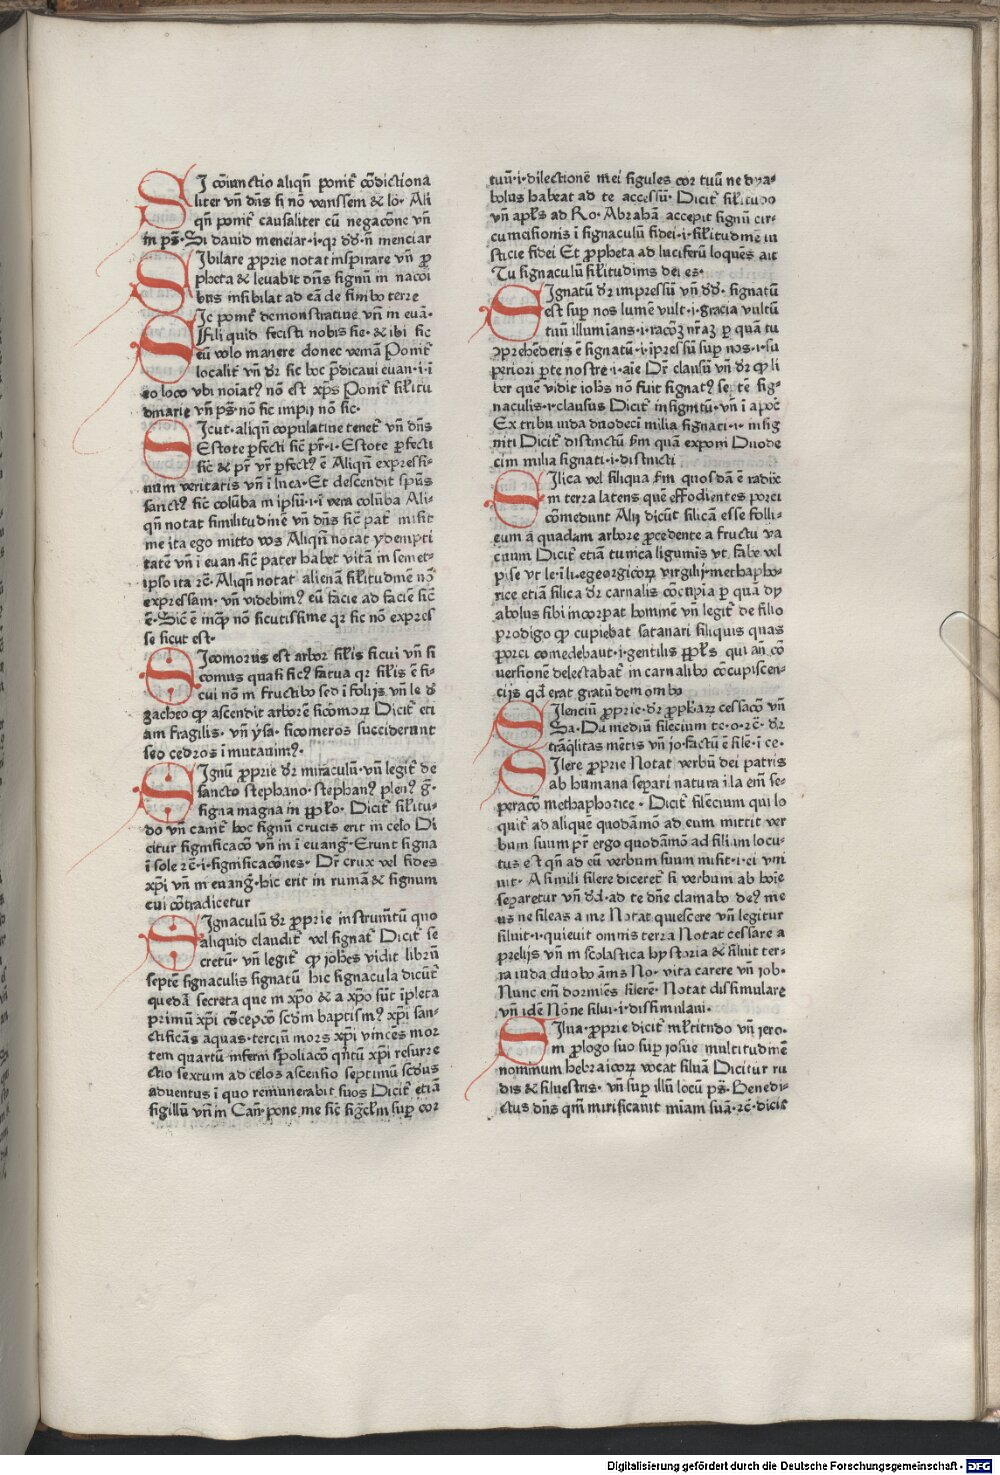 SI cōiunctio aliqñ ponit̄ cōdictiona
liter vñ dñs si nō venissem & lō· Ali
qñ ponit̄ causaliter cū negacōne vñ
in ps̄· Si dauid menciar·i·qr dd̄·n̄ menciar
SIbilare ꝓprie notat inspirare vñ ꝓ
pheta & leuabit dñs signū in nacōi
bus insibilat ad eā de finibo terre
SIc ponit̄ demonstratiue vñ in euā·
Fili quid fecisti nobis sic· & ibi sic
eū volo manere donec veniā Ponit̄
localit̄ vñ dr̄ sic hoc p̄dicaui euan·i·i
eo loco vbi noīatꝰ nō est xp̄s Ponit̄ sīlitu
dinarie vñ ps̄· nō sic impij nō sic·
SIcut· aliqñ copulatiue tenet̄ vñ dñs
Estote ꝑfecti sic̄ pr̄·i·Estote ꝑfecti
sic̄ & pr̄ vr̄ ꝑfectꝰ ē Aliqñ expressi-
uum veritatis vñ ī luca·Et descendit spūs
sanctꝰ sic̄ colūba in ipsū·i·ī vera colūba Ali-
qñ notat similitudinē vñ dñs sic̄ pat̄ misit
me ita ego mitto vos Aliqñ notat ydempti
tatē vñ ī euan·sic̄ pater habet vitā in semet-
ipso ita rc̄· Aliqñ notat alienā sīlitudinē nō
expressam· vñ videbimꝰ eū facie ad faciē sic̄
ē·Sic̄ ē incp̄ nō sicutissime qr sic nō expres
se sicut est·
SIcomorus est arbor sīlis ficui vñ si
comus quasi ficꝰ fatua qr sīlis ē fi-
cui nō in fructibo sed ī folijs vñ le dr̄
zacheo qp ascendit arborē sicomorꝝ Dicit̄ eti
am fragilis· vñ ysa· sicomeros succiderunt
seo cedros īmutauimꝰ·
SIgnū ꝓprie dr̄ miraculū·vñ legit̄ de
sancto stephano·stephanꝰ plenꝰ g̅·
signa magna in pp̄lo· Dicit̄ sīlitu-
do vñ canit̄ hoc signū crucis erit in celo Di
citur significacō vñ in ī euang̅·Erunt signa
ī sole rc̄·i·significacōnes· Dr̄ crux vel fides
xp̄i vñ in euang̅·hic erit in ruinā & signum
cui cōtradicetur
SIgnaculū dr̄ ꝓprie instrumtū quo
aliquid claudit̄ vel signat̄ Dicit̄ se
cretū· vñ legit̄ qp ioh̄es vidit librū
septē signaculis signatū hic signacula dicūt
quedā secreta que in xp̄o & a xp̄o sūt īpleta
primū xp̄i cōcepcō scdm baptismꝰ xp̄i san-
ctificās aquas·terciū mors xp̄i vincēs mor
tem quartū inferni spoliacō qntū xp̄i resurre
ctio sextum ad celos ascensio septimū scdus
aduentus ī quo remunerabit suos Dicit̄ etiā
sigillū vñ in Can̄·pone me sic̄ sigclm sup̄ cor
tuū·i·dilectionē mei sigules cor tuū ne dya-
bolus habeat ad te accessū· Dicit̄ sīlitudo
vñ apl̄s ad Ro· Abrahā accepit signū cir-
cumcisionis ī signaculū fidei·i·sīlitudinē iu
sticie fidei Et ꝓpheta ad luciferū loquēs ait
Tu signaculū sīlitudinis dei es·
SIgnatū dr̄ impressū vñ dd̄· signatū
est sup̄ nos lumē vult·i·gracia vultū
tuū illuminans·i·racōꝫ nr̄aꝫ ꝑ quā tu
ꝯprehēderis ē signatū·i·īpressū sup̄ nos·i·su
periori ꝑte nostre·i·aīe Dr̄ clausū vñ dr̄ qp li
ber quē vidit ioh̄s nō fuit signatꝰ septē sig-
naculis·i·clausus Dicit̄ insignitū· vñ ī apoc̄
Ex tribu iuda duodeci milia signati·i·insig
niti Dicit̄ distinctū s̄m quā exponi Duode
cim milia signati·i·distincti
SIlica vel siliqua s̄m quosdā ē radix
in terra latens quē effodientes porci
cōmedunt Alij dicūt silicā esse folli-
cum ā quadam arbore ꝓcedente a fructu va
cuum Dicit̄ etiā tunica liguminis vt fabe vel
pise vt le·ī li·egeorgicorꝝ virgilij·methapho-
rice etiā silica dr̄ carnalis cōcupia ꝑ quā dy
abolus sibi incorpat hominē vñ legit̄ de filio
prodigo qp cupiebat satanari siliquis quas
porci comedebant·i·gentilis pp̄ls qui an̄ cō
uersionē delectabat̄ in carnalibo cōcupiscen-
cijs qd erat gratū demonibo
SIlenciū ꝓprie·dr̄ ꝓpharꝝ cessacō vñ
Sa·Du mediū silecium te·o·rc̄· dr̄
tranqlitas mētis vñ io·factū ē silē·ī ce·
SIlere ꝓprie Notat verbū dei patris
ab humana separi natura īla em̄ se-
peracō methaphorice· Dicit̄ silēcium qui lo
quit̄ ad aliquē quodāmō ad eum mittit ver
bum suum pr̄ ergo quodāmō ad filium locu-
tus est qñ ad eū verbum suum misit·i·ei vni
uit· A simili silere diceret̄ si verbum ab hoīe
separetur vñ d̄d·ad te dñe clamabo deꝰ me
us ne sileas a me Notat quiescere vñ legitur
siluit·i·quieuit omnis terra Notat cessare a
prelijs vñ in scolastica hystoria & siluit ter-
ra iuda duobo ānis No· vita carere vñ iob·
Nunc em̄ dormiēs silerē· Notat dissimulare
vñ idē Nōne silui·i·dissimulaui·
SIlua ꝓprie dicit̄ ml̄titudo vñ iero·
in ꝓlogo suo sup̄ iosue multitudinē
nominum hebraicorꝝ vocat siluā Dicitur ru
dis & siluestris· vñ sup̄ illū locū ps̄· Benedi-
ctus dñs qm̄ mirificauit miam suā·rc̄·dicit̄
Digitalisierung gefördert durch die Deutsche Forschungsgemeinschaft - DFG